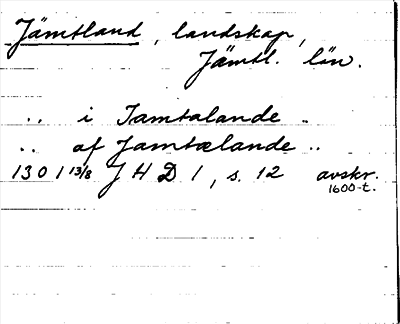 Jämtland, landskap,
Jämtl. län.
.. i Jamtalande ..
.. af Jamtælande ..
1301 13/8 JHD 1, s. 12 avskr.
1600-t.